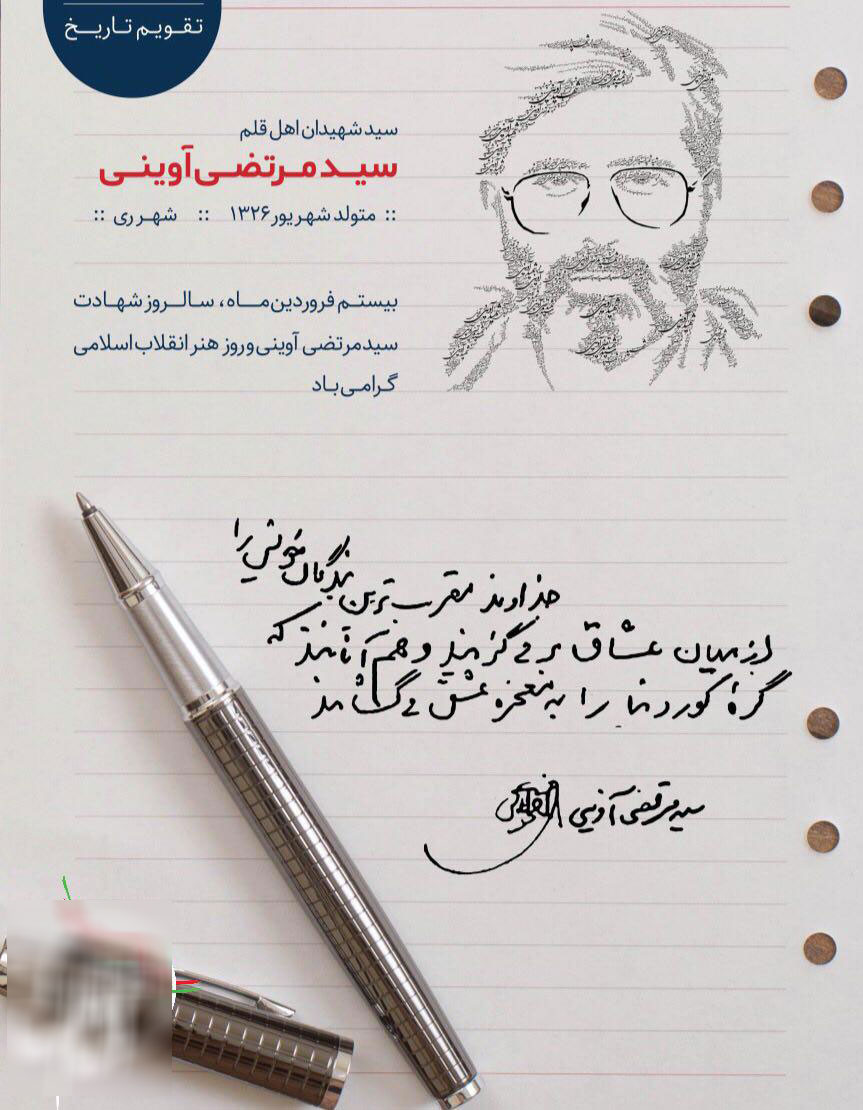 تقویم تاریخ
سید شهیدان اهل قلم
سید مرتضی آوینی
:: متولد شهریور ۱۳۲۶ :: شهر ری ::
بیستم فروردین ماه، سالروز شهادت
سید مرتضی آوینی و روز هنر انقلاب اسلامی
گرامی باد
خداوند مقرب ترین بندگان خویش را
از میان عشاق بر می گزیند و هم آنانند که
گرهٔ کور دنیا را به معجزه عشق می گشایند
سید مرتضی آوینی